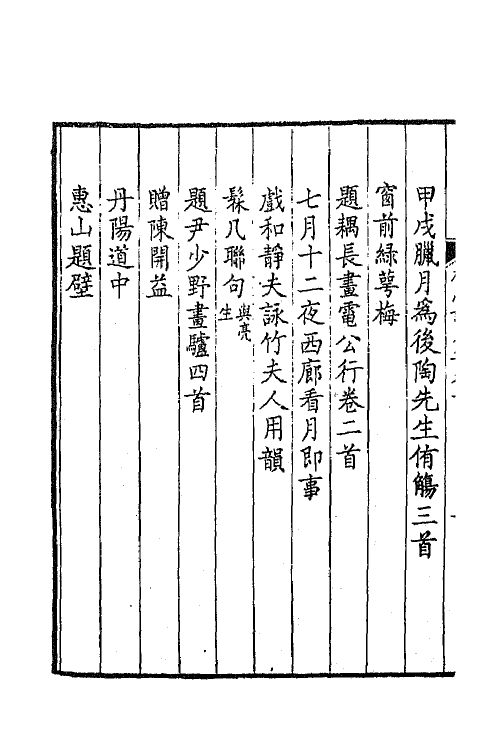 甲戌臘月為後陶先生侑觴三首
窗前緑萼梅
題耦長畫電公行卷二首
七月十二夜西廊看月即事
戲和靜夫詠竹夫人用韻
髹几聯句與亮生
題尹少野畫驢四首
贈陳開益
丹陽道中
惠山題壁